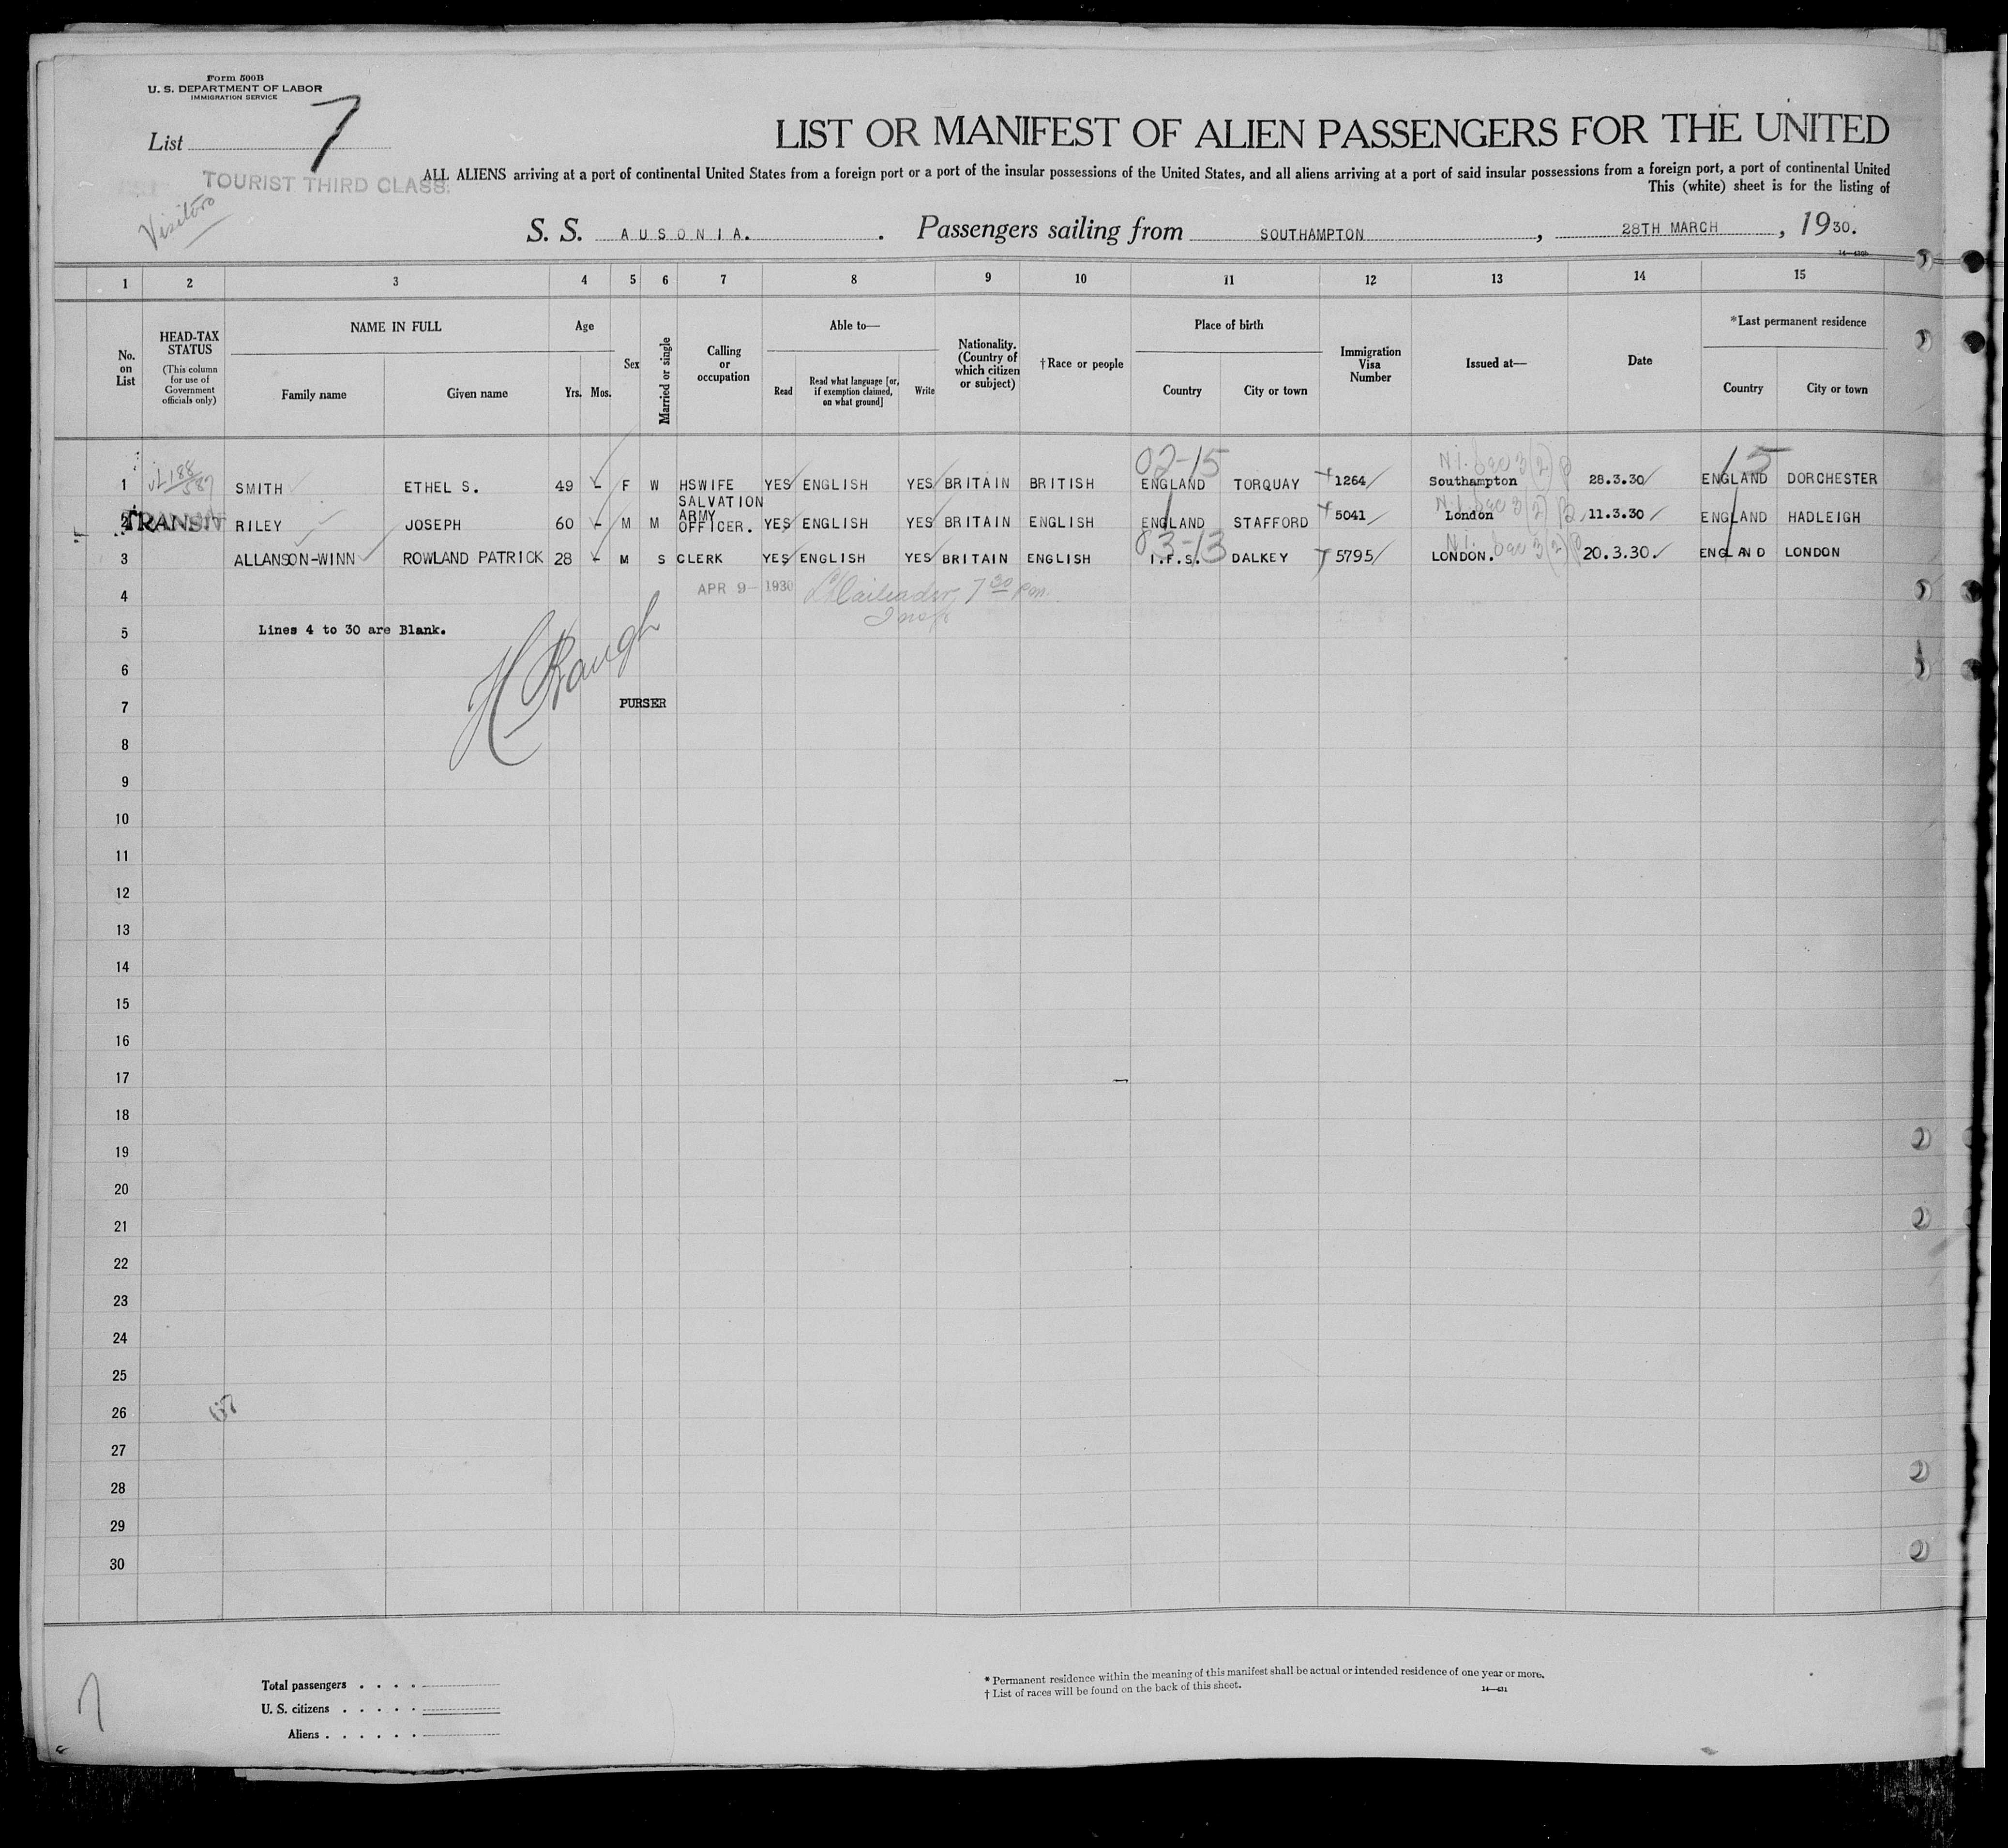 Form 500B
U. S. DEPARTMENT OF LABOR
IMMIGRATION SERVICE
List 7
TOURIST THIRD CLASS.
Visitors
LIST OR MANIFEST OF ALIEN PASSENGERS FOR THE UNITED
ALL ALIENS arriving at a port of continental United States from a foreign port or a port of the insular possessions of the United States, and all aliens arriving at a port of said insular possessions from a foreign port, a port of continental United
This (white) sheet is for the listing of
S. S. AUSONIA. . Passengers sailing from SOUTHAMPTON , 28TH MARCH , 1930.
1 2 3 4 5 6 7 8 9 10 11 12 13 14 15
No. on List
HEAD-TAX STATUS
(This column for use of Government officials only)
NAME IN FULL
Family name Given name
Age
Yrs. Mos.
Sex
Married or single
Calling or occupation
Able to—
Read Read what language [or, if exemption claimed, on what ground] Write
Nationality. (Country of which citizen or subject)
†Race or people
Place of birth
Country City or town
Immigration Visa Number
Issued at—
Date
*Last permanent residence
Country City or town
02-15 15
1 188/587 SMITH ETHEL S. 49 - F W HSWIFE YES ENGLISH YES BRITAIN BRITISH ENGLAND TORQUAY 1264 Southampton 28.3.30 ENGLAND DORCHESTER
2 TRANSIT RILEY JOSEPH 60 - M M SALVATION ARMY OFFICER. YES ENGLISH YES BRITAIN ENGLISH ENGLAND STAFFORD 5041 London 11.3.30 ENGLAND HADLEIGH
03-13
3 ALLANSON-WINN ROWLAND PATRICK 28 - M S CLERK YES ENGLISH YES BRITAIN ENGLISH I.F.S. DALKEY 5795 LONDON. 20.3.30. ENGLAND LONDON
4 APR 9- 1930 7 30 pm
Insp
5 Lines 4 to 30 are Blank.
6
7 PURSER
8
9
10
11
12
13
14
15
16
17
18
19
20
21
22
23
24
25
26
27
28
29
30
Total passengers
U. S. citizens
Aliens
* Permanent residence within the meaning of this manifest shall be actual or intended residence of one year or more.
† List of races will be found on the back of this sheet.
14—431
7